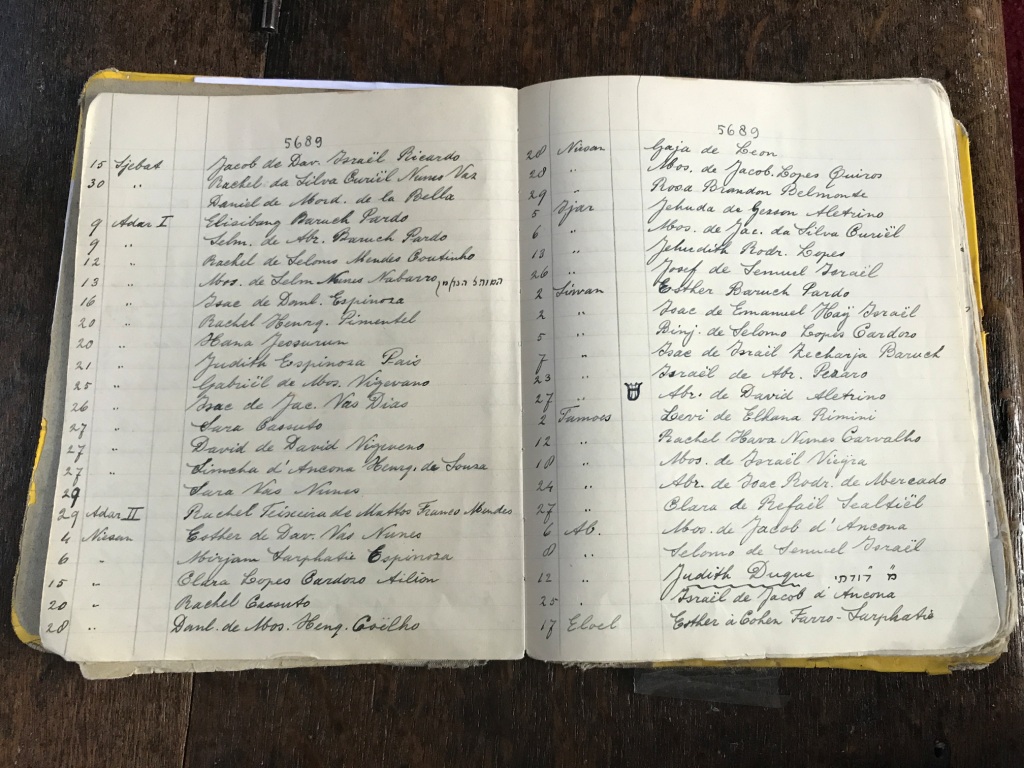 5689
15 Sjebat Jacob de Dav. Israël Ricardo
30 " Rachel da Silva Curiël Nunes Vaz
Daniel de Mord. de la Bella
9 Adar I Elisibang Baruch Pardo
9 " Selm. de Abr. Baruch Pardo
12 " Rachel de Selomo Mendes Coutinho
13 " Mos. de Selm Nunes Nabarro
16 " Isac de Danl. Espinoza
20 " Rachel Henrq. Pimentel
20 " Hana Jessurun
21 " Judith Espinosa Pais
25 " Gabriël de Mos. Vigevano
26 " Isac de Jac. Vas Dias
27 " Sara Cassuto
27 " David de David Vigeveno
27 " Simcha d'Ancona Henrq. de Souza
29 " Sara Vas Nunes
29 Adar II Rachel Teixeira de Mattos Franco Mendes
4 Nissan Esther de Dav. Vas Nunes
6 " Mirjam Sarphatie Espinoza
15 " Clara Lopes Cardozo Ailion
20 " Rachel Cassuto
28 " Danl. de Mos. Henq. Coëlho
5689
28 Nissan Gaja de Leon
28 " Mos. de Jacob Lopes Quiros
29 " Rosa Brandon Belmonte
5 Ijar Jehuda de Gerson Aletrino
6 " Mos. de Jac. da Silva Curiël
13 " Jehudith Rodr. Lopes
26 " Josef de Semuel Israël
2 Siwan Esther Baruch Pardo
2 " Isac de Emanuel Haÿ Israël
5 " Binj. de Selomo Lopes Cardozo
7 " Isac de Israil Zecharja Baruch
23 " Israël de Abr. Pezaro
27 " Abr. de David Aletrino
2 Tamoes Levi de Elkana Rimini
12 " Rachel Hava Nunes Carvalho
18 " Mos. de Israël Vieyra
24 " Abr. de Isac Rodr. de Mercado
27 " Clara de Refaël Sealtiël
6 Ab. Mos. de Jacob d'Ancona
8 " Selomo de Semuel Israël
12 " Judith Duque מ" דודתי
25 " Israël de Jacob d'Ancona
17 Eloel Esther a Cohen Farro-Sarphatie